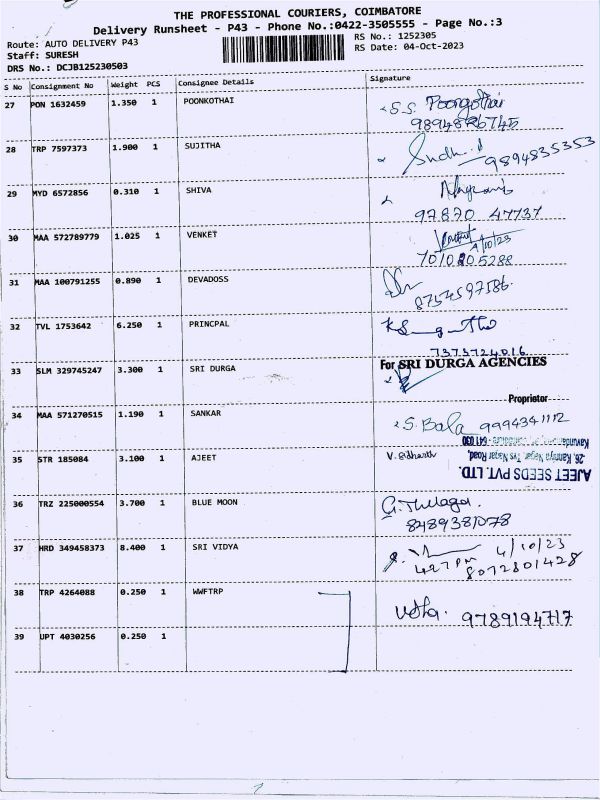 THE PROFESSIONAL COURIERS, COIMBATORE
Delivery Runsheet - P43 - Phone No.:0422-3505555 - Page No.:3
Route: AUTO DELIVERY P43
RS No.: 1252305
Staff: SURESH
RS Date: 04-Oct-2023
DRS No.: DCJB125230503
S No Consignment No Weight PCS Consignee Details Signature
27 PON 1632459 1.350 1 POONKOTHAI S.S. Poongothai
28 TRP 7597373 1.900 1 SUJITHA 9894835353
29 MYD 6572856 0.310 1 SHIVA
97870 47737
30 MAA 572789779 1.025 1 VENKET
4/10/23
7010805288
31 MAA 100791255 0.890 1 DEVADOSS
8754597586
32 TVL 1753642 6.250 1 PRINCPAL
7373724016
33 SLM 329745247 3.300 1 SRI DURGA For SRI DURGA AGENCIES
Proprietor
34 MAA 571270515 1.190 1 SANKAR S. Bala 9994341112
35 STR 185084 3.100 1 AJEET V. Sidharth
AJEET SEEDS PVT. LTD.
26, Kannya Nagar, Tvs Nagar Road,
Kavundam 641 030
36 TRZ 225000554 3.700 1 BLUE MOON G. Thulaga
8489381078
37 HRD 349458373 8.400 1 SRI VIDYA 4/10/23
4.27 PM 8072801428
38 TRP 4264088 0.250 1 WWFTRP Usha. 9789194717
39 UPT 4030256 0.250 1